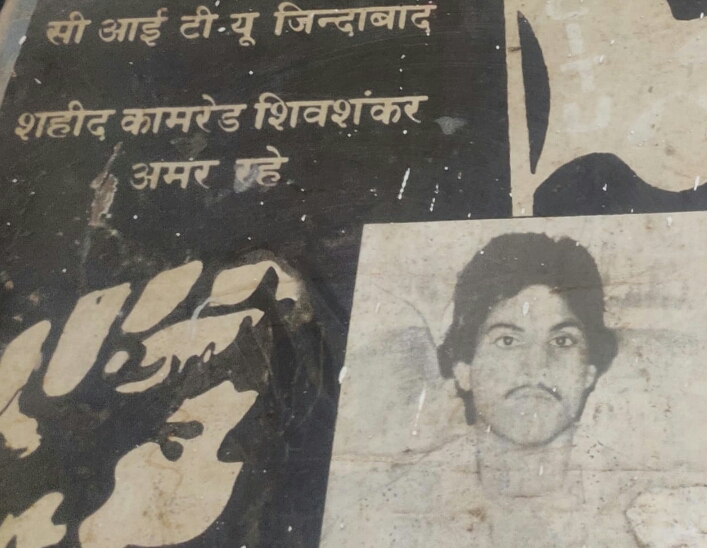 सी आई टी यू जिन्दाबाद
शहीद कामरेड शिवशंकर
अमर रहे